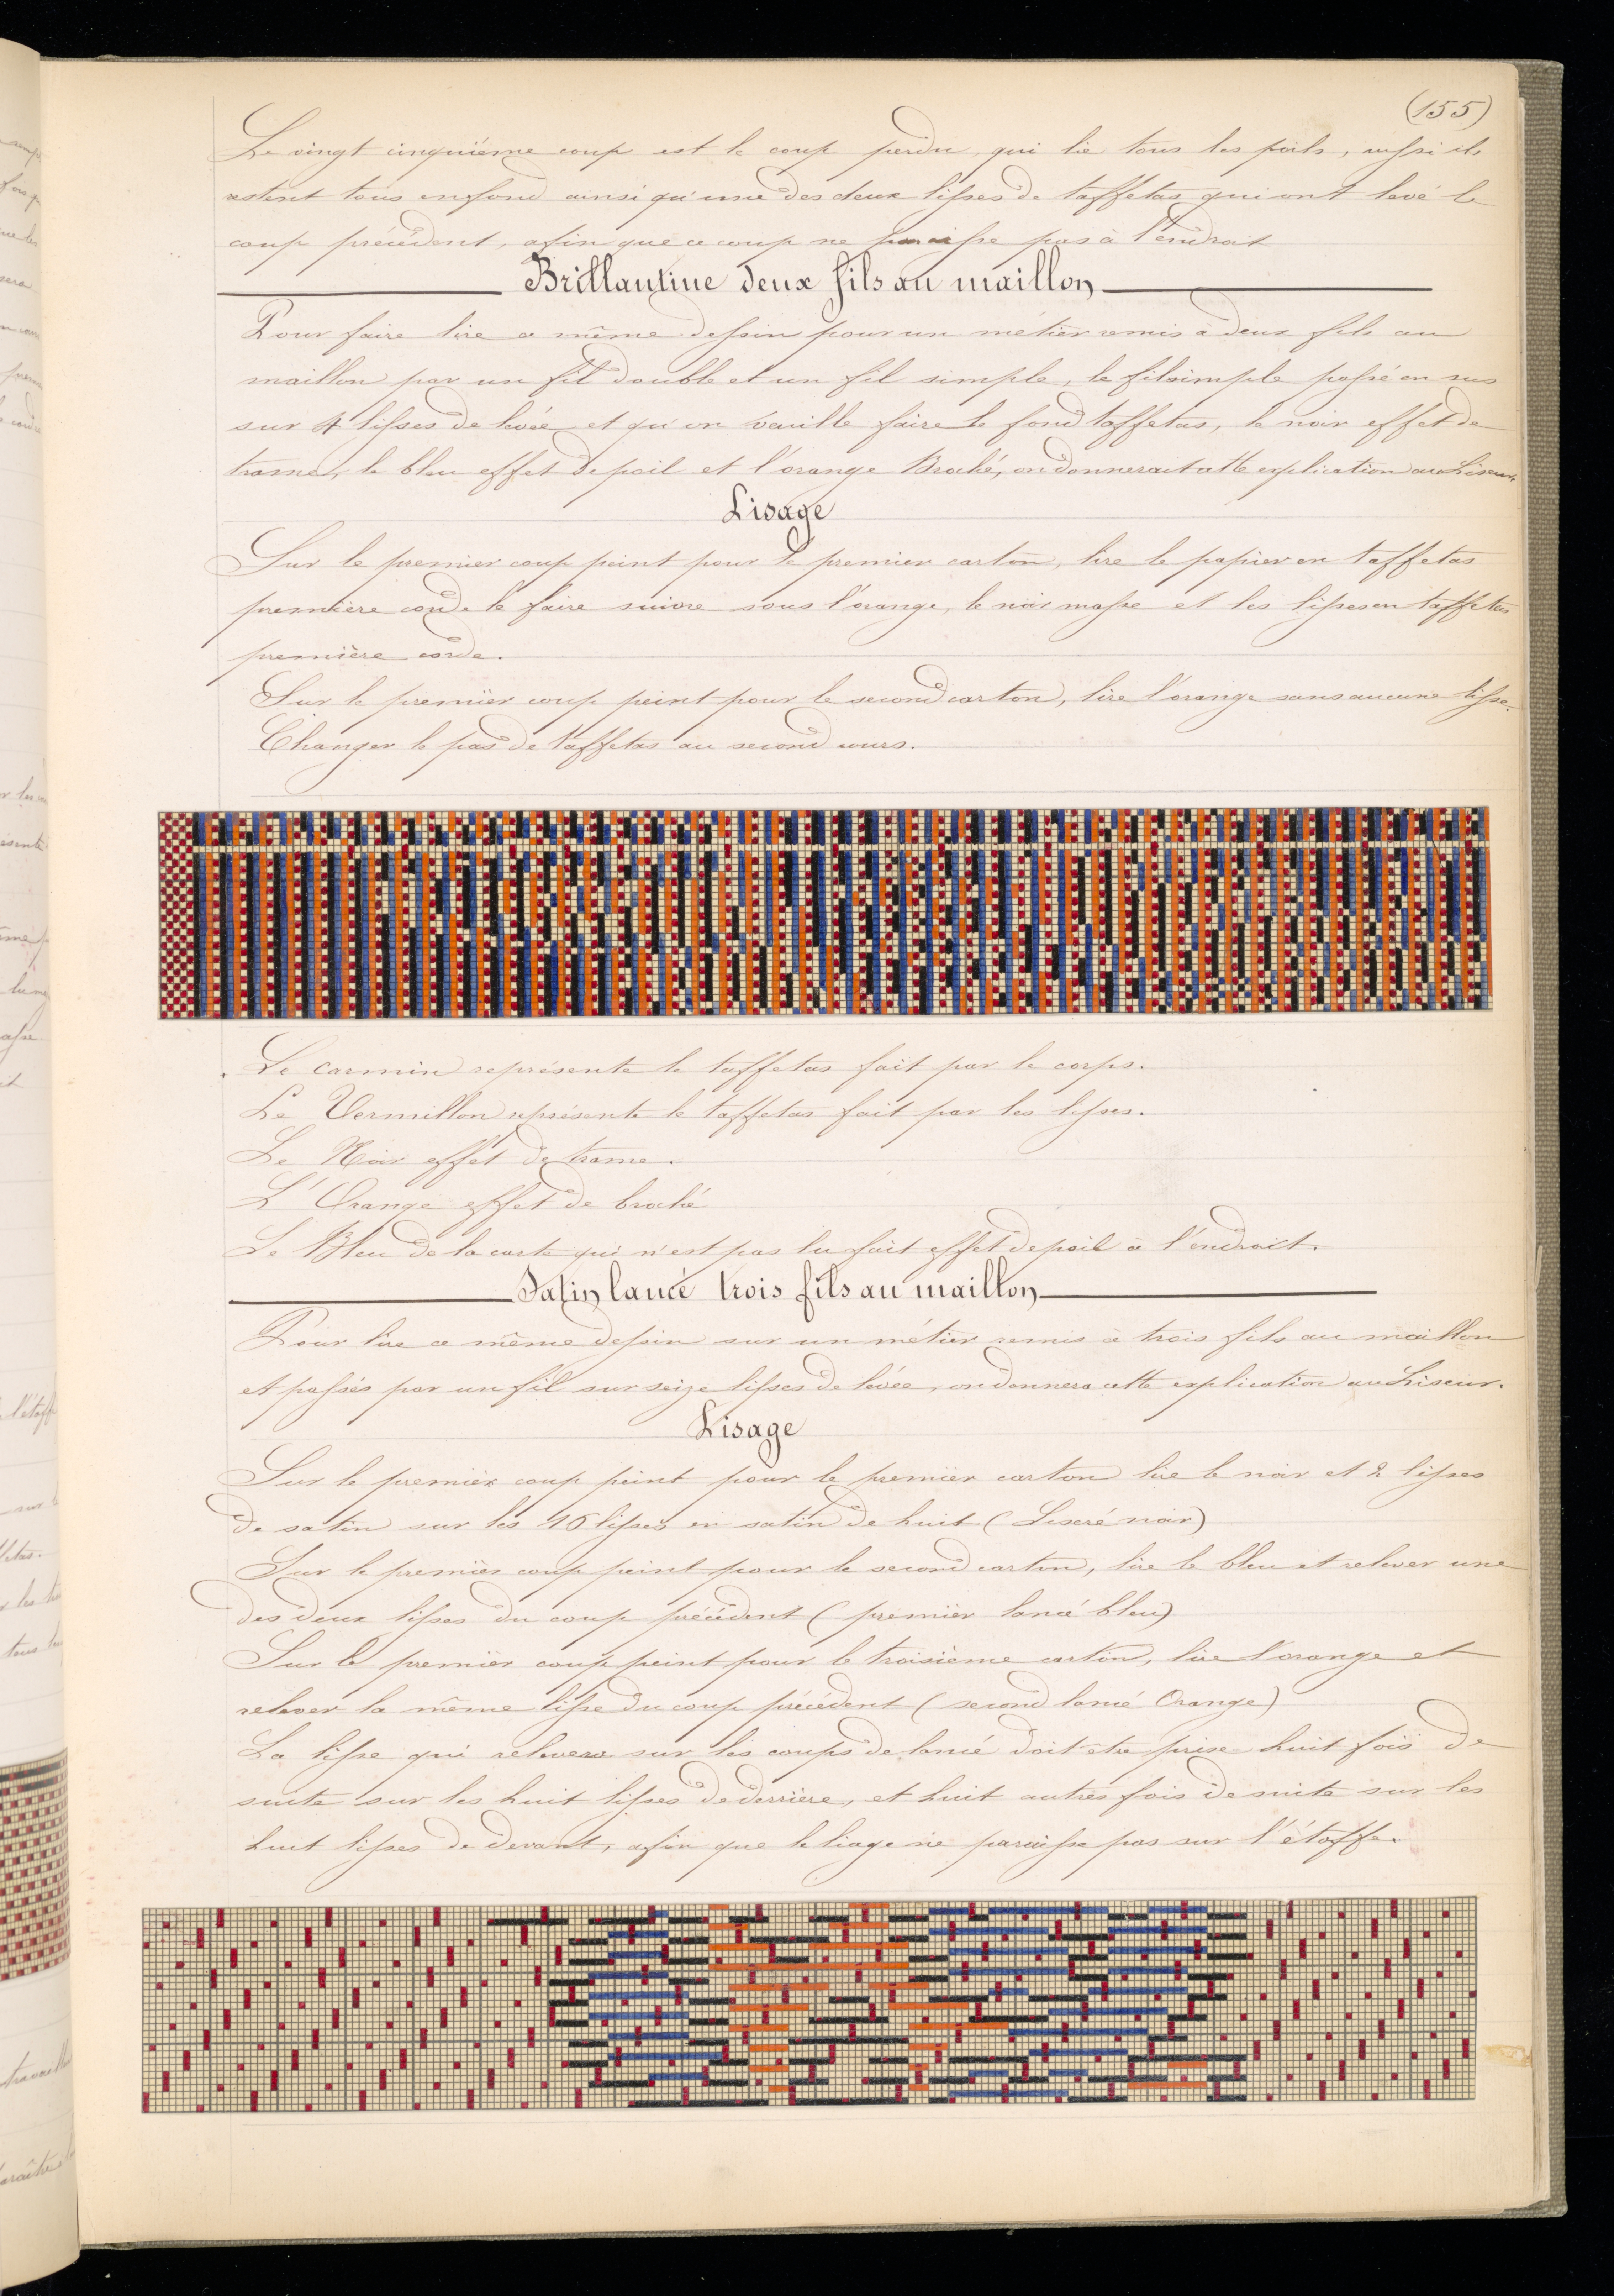 (155)
Le vingt cinquième coup est le coup perdu, qui lie tous les poils, aussi ils
restent tous en fond ainsi qu'une des deux lisses de taffetas qui ont levé le
coup précédent, afin que ce coup ne paraisse pas à l'endroit
Brillantine deux fils au maillon
Pour faire lire ce même dessin pour un métier remis à deux fils au
maillon par un fil double et un fil simple, le fil simple passé en sus
sur 4 lisses de levée et qu'on veuille faire le fond taffetas, le noir effet de
trame, le bleu effet de poil et l'orange Broché, on donnerait cette explication au Liseur.
Lisage
Sur le premier coup peint pour le premier carton, lire le papier en taffetas
première corde le faire suivre sous l'orange, le noir masse et les lisses en taffetas
première corde.
Sur le premier coup peint pour le second carton, lire l'orange sans aucune lisse.
Changer le pas de taffetas au second cours.
Le carmin représente le taffetas fait par le corps.
Le Vermillon représente le taffetas fait par les lisses.
Le Noir effet de trame.
L'Orange effet de broché
Le Bleu de la carte qui n'est pas lu fait effet de poil à l'endroit.
Satin lancé trois fils au maillon
Pour lire ce même dessin sur un métier remis à trois fils au maillon
et passés par un fil sur seize lisses de levée, on donnera cette explication au Liseur.
Lisage
Sur le premier coup peint pour le premier carton lire le noir et 2 lisses
de satin sur les 16 lisses en satin de huit (Liseré noir)
Sur le premier coup peint pour le second carton, lire le bleu et relever une
des deux lisses du coup précédent (premier lancé bleu)
Sur le premier coup peint pour le troisième carton, lire l'orange et
relever la même lisse du coup précédent (second lancé Orange)
La lisse qui relevera sur les coups de lancé doit être prise huit fois de
suite sur les huit lisses de derrière, et huit autres fois de suite sur les
huit lisses de devant, afin que le liage ne paraisse pas sur l'étoffe.